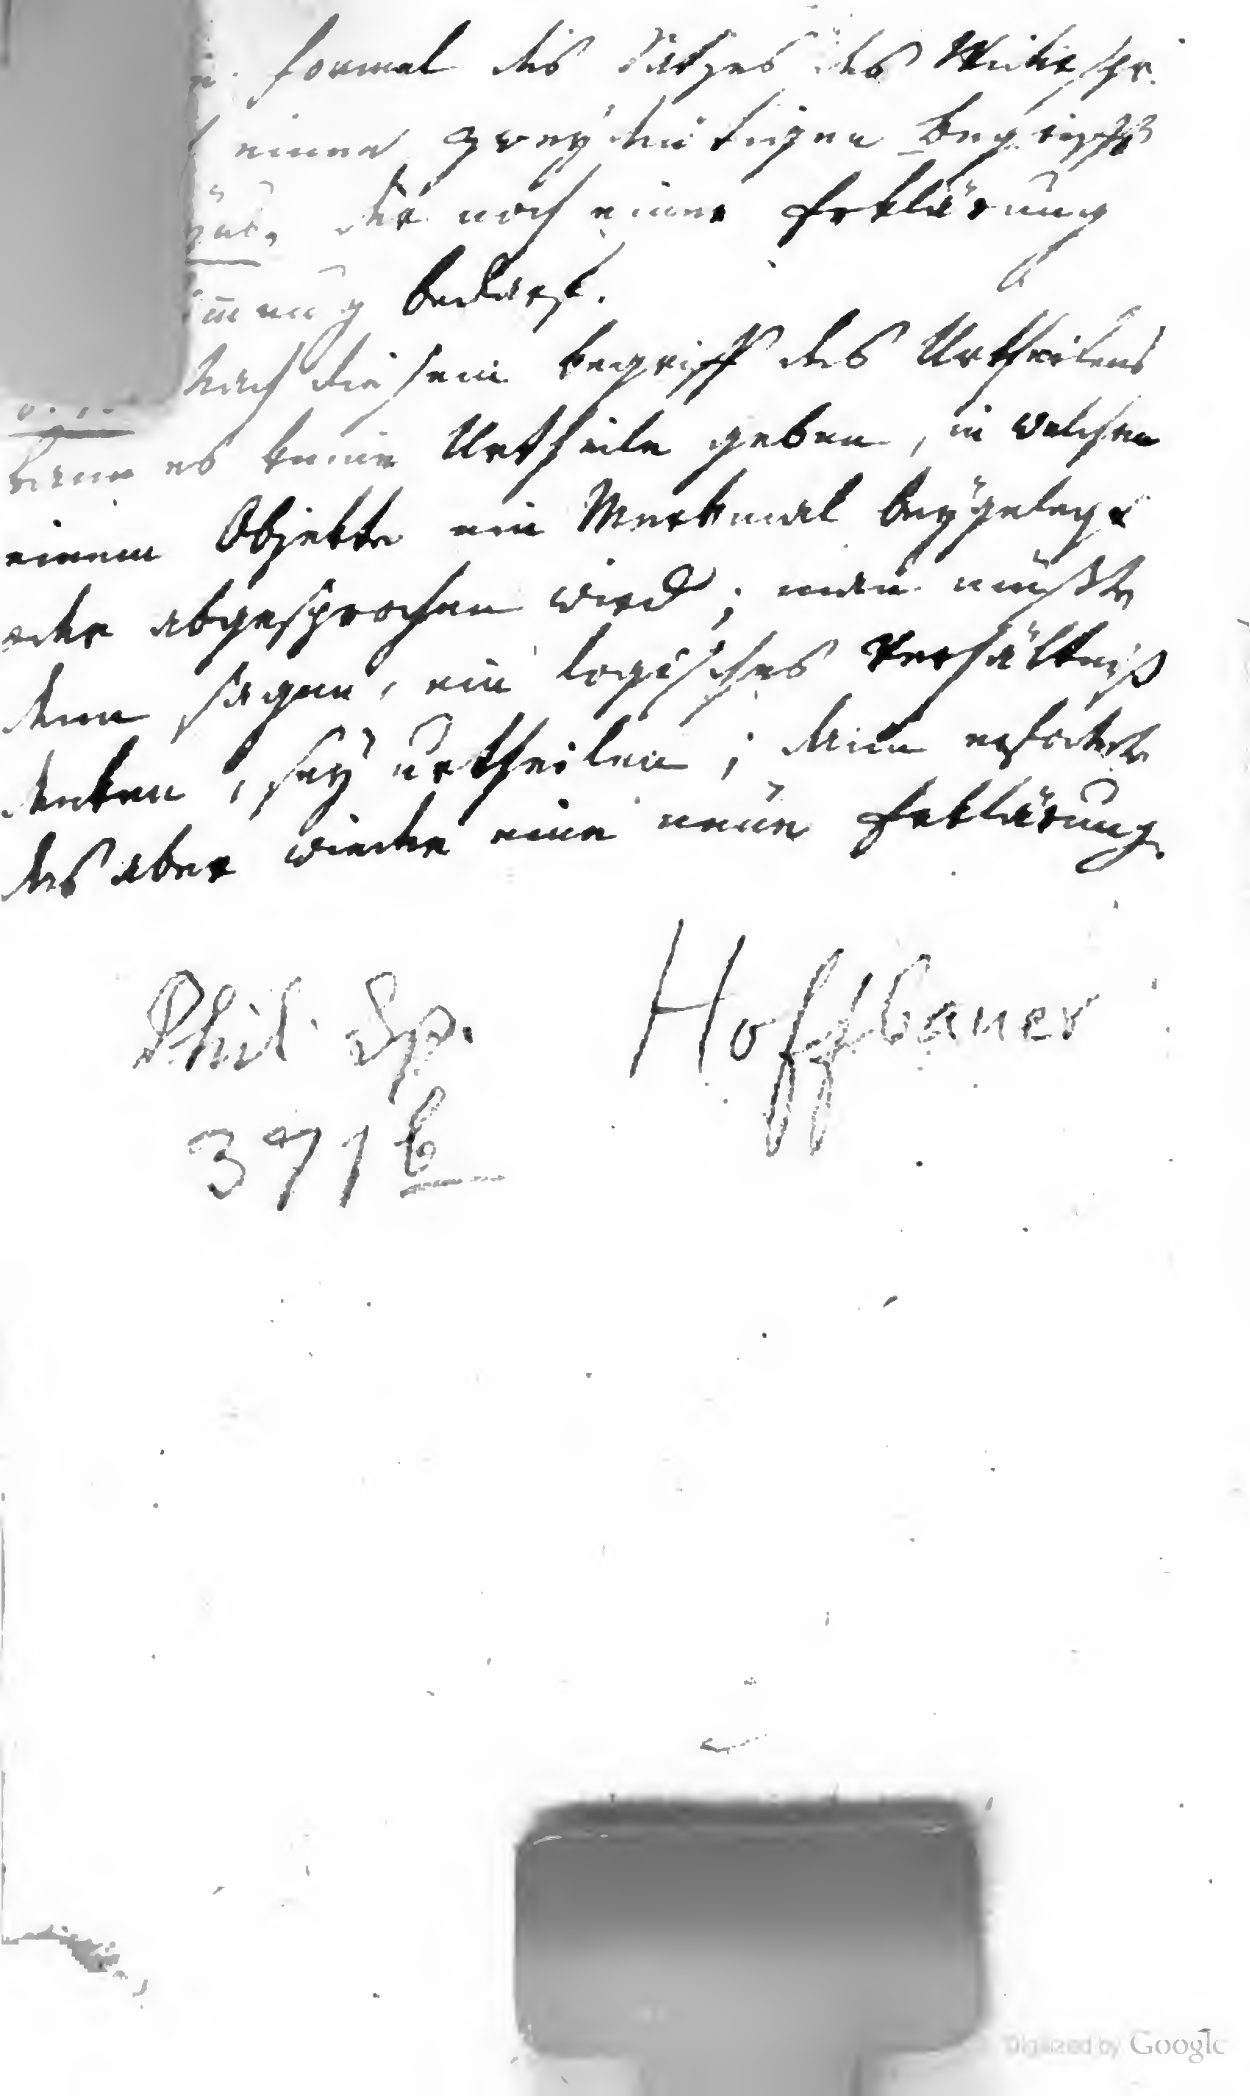 formal des Satzes des Widerspr.
einen zweydeutigen Begriff
der noch einer Erklärung
bedarf.
Nach diesem Begriff des Urtheilens
kann es keine Urtheile geben, in welchen
einem Objekte ein Merkmal beygelegt
oder abgesprochen wird; man müßte
denn sagen, ein logisches Verhältniß
denken, sey urtheilen; dann erfodert
das aber wieder eine neue Erklärung.
Phil. Sp. Hoffbauer
371 b
Digitized by Google